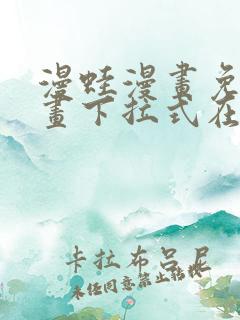 漫蛙漫畫免
畫下拉式在
卡拉布呂尼
未经同意禁止转载